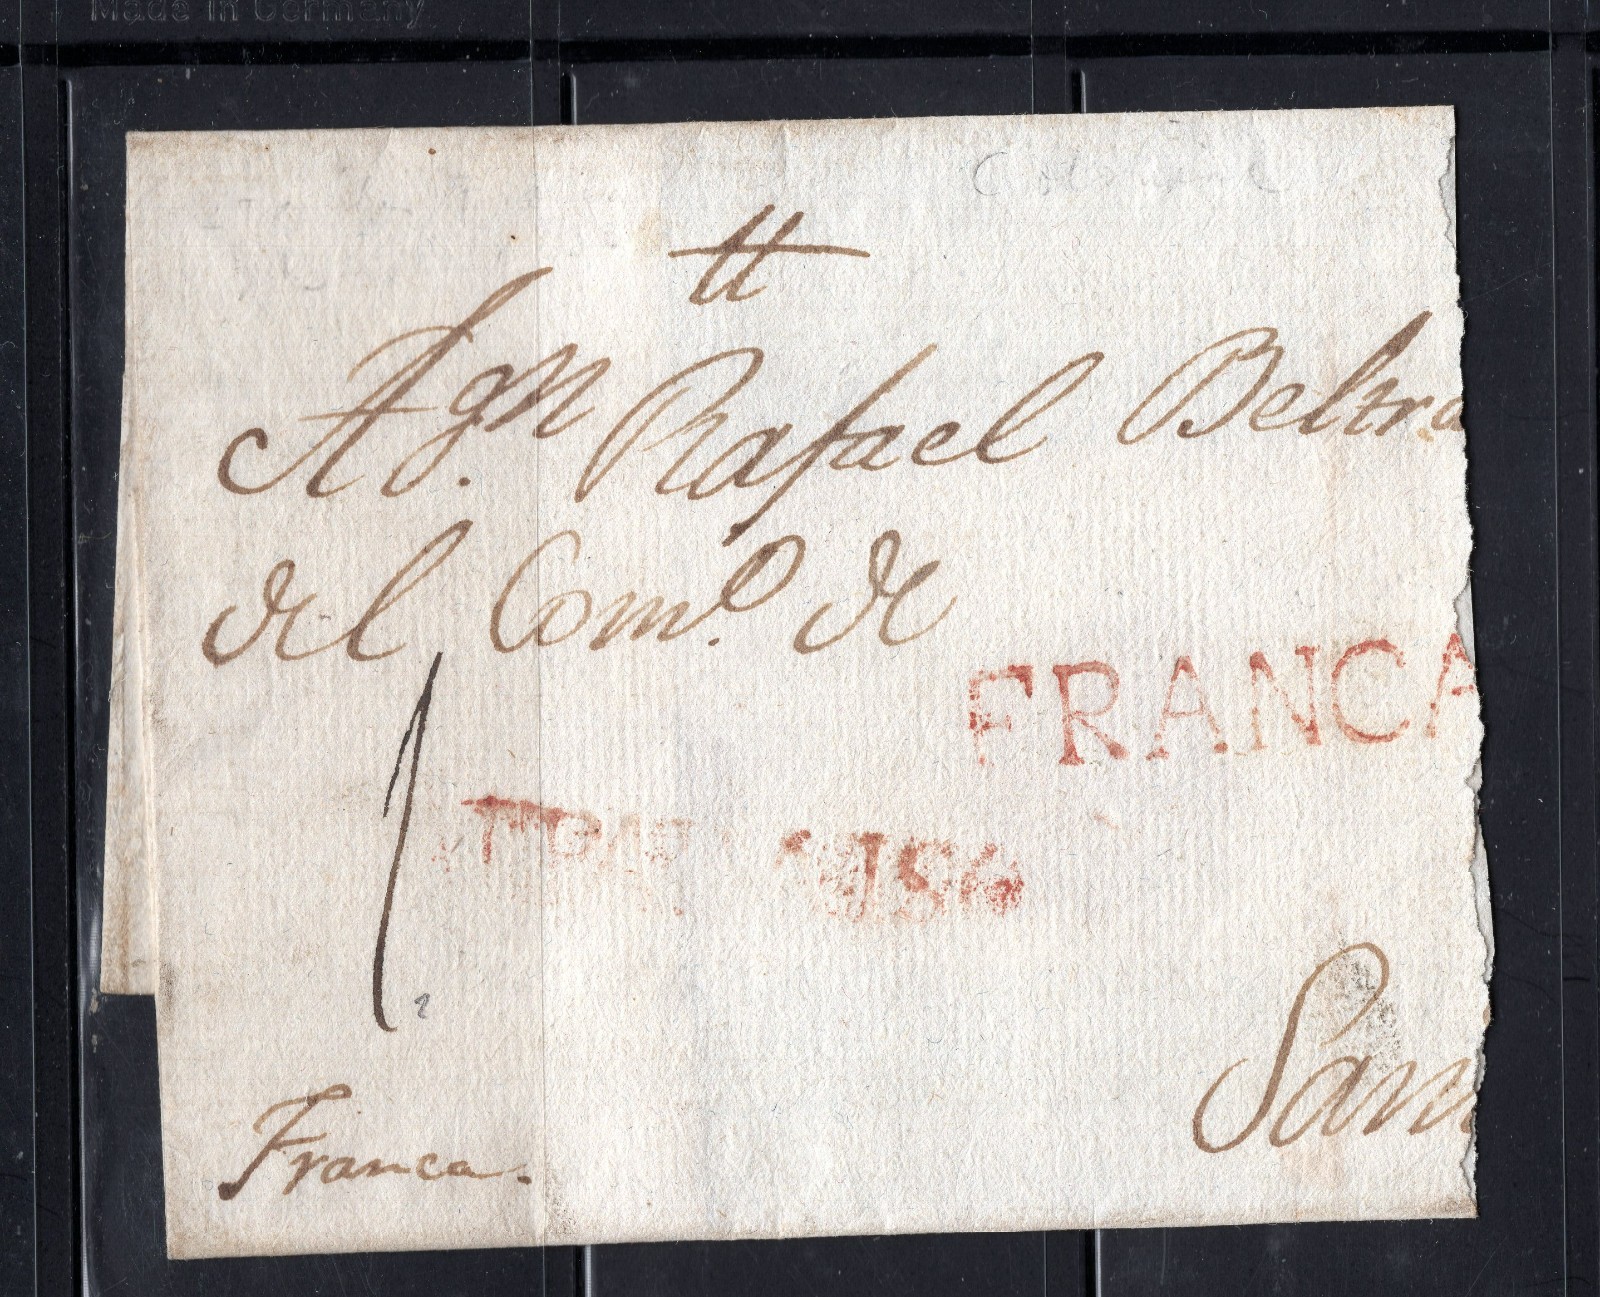 Made in Germany
tt
A Dn. Rafael Beltra
del Como. de
FRANCA
1
Franca.
San